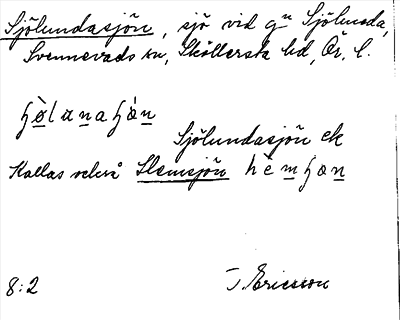 Sjölundasjön, sjö vid gn Sjölunda,
Svennevads sn, Sköllersta hd, Ör. l.
Sjölundasjön ek
Kallas också Hemsjön
8:2 T. Ericsson